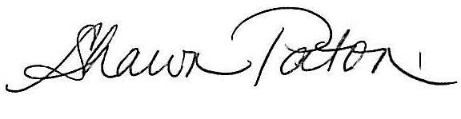 Shawn Paton